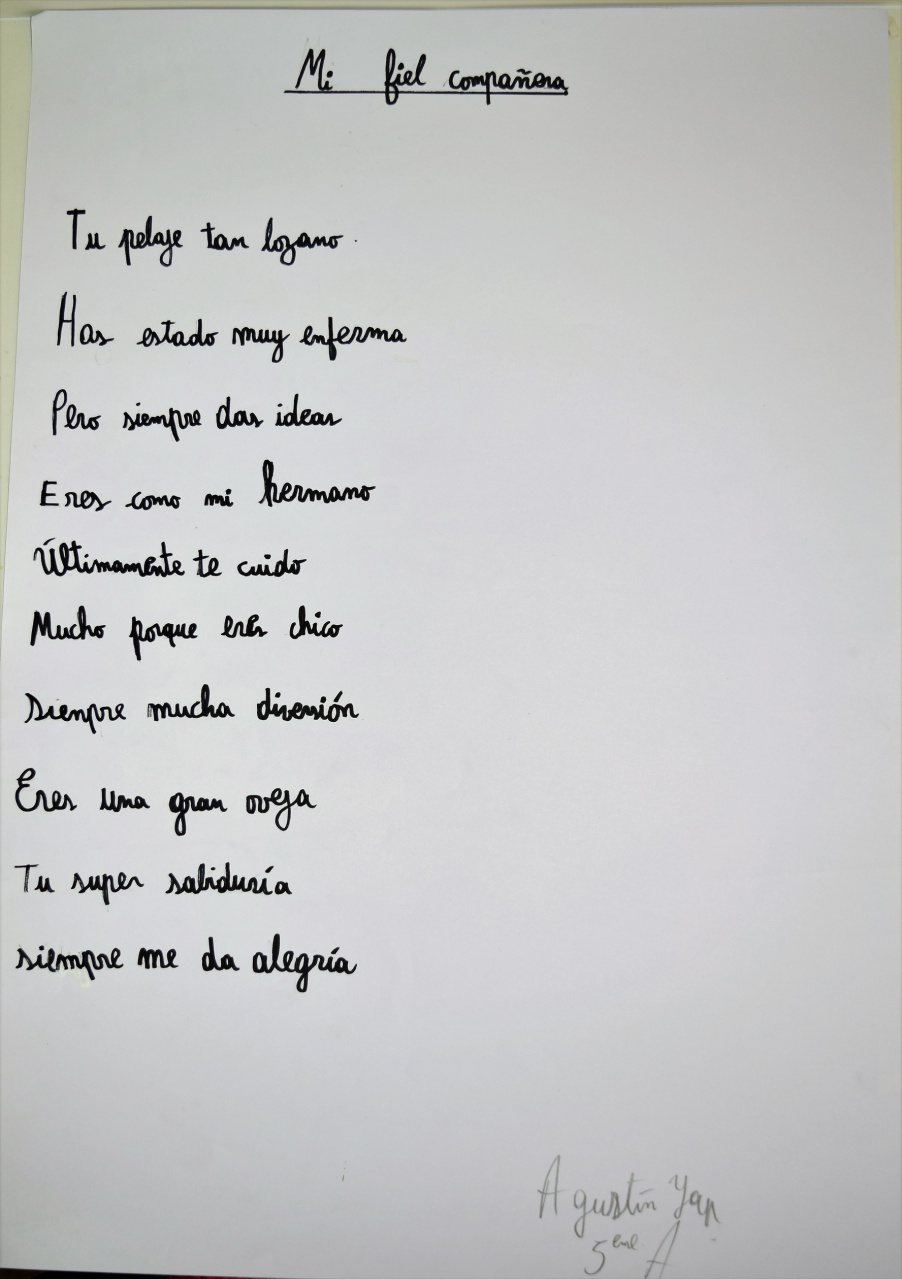 Mi fiel compañera
Tu pelaje tan lozano.
Has estado muy enferma
Pero siempre das ideas
Eres como mi hermano
Últimamente te cuido
Mucho porque eres chico
Sienpre mucha diversión
Eres una gran oveja
Tu super sabiduría
siempre me da alegría
Agustín
5eme A